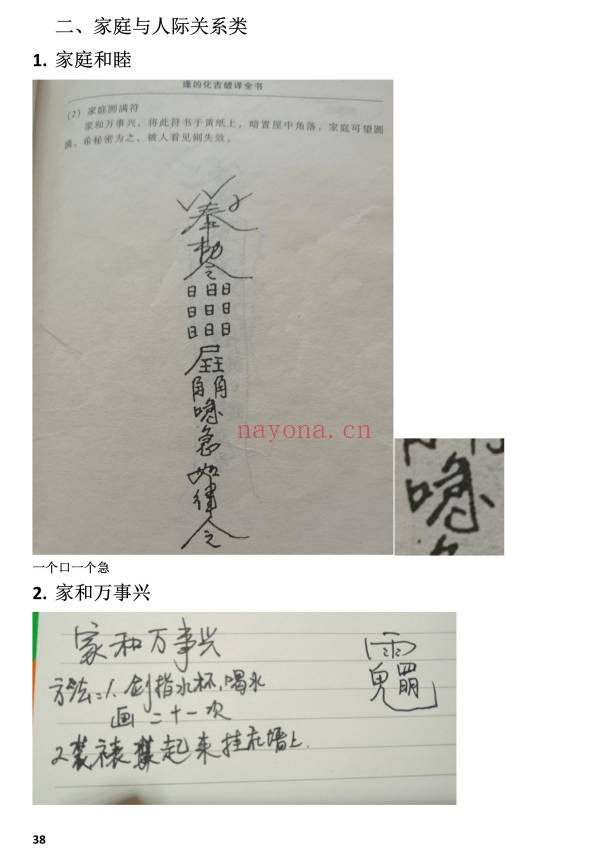 二、家庭与人际关系类
1. 家庭和睦
逢凶化吉破译全书
(2) 家庭圆满符
家和万事兴，将此符书于黄纸上，暗置屋中角落，家庭可望圆
满，亲秘密为之，被人看见则失效。
奉
勅
令
日 日日
日 日日
日 日日
喼
急
如
律
令
nayona.cn
喼
一个口一个急
2. 家和万事兴
家和万事兴
方法:1. 剑指水杯,喝水
画二十一次
2装裱 起来挂在墙上.
38